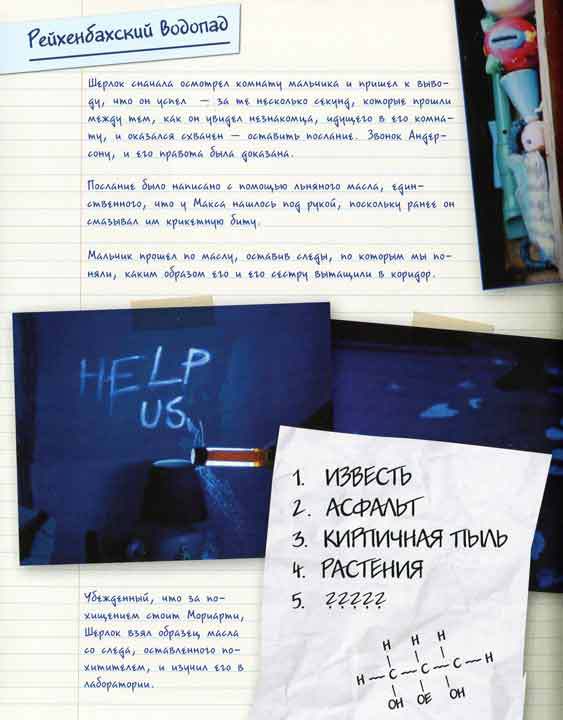 Рейхенбахский водопад
Шерлок сначала осмотрел комнату мальчика и пришел к выво-
ду, что он успел — за те несколько секунд, которые прошли
между тем, как он увидел незнакомца, идущего в его комна-
ту, и оказался схвачен — оставить послание. Звонок Андер-
сону, и его правота была доказана.
Послание было написано с помощью льняного масла, един-
ственного, что у Макса нашлось под рукой, поскольку ранее он
смазывал им крикетную биту.
Мальчик прошел по маслу, оставив следы, по которым мы по-
няли, каким образом его и его сестру вытащили в коридор.
HELP
US
1. ИЗВЕСТЬ
2. АСФАЛЬТ
3. КИРПИЧНАЯ ПЫЛЬ
4. РАСТЕНИЯ
5. ?????
Убежденный, что за по-
хищением стоит Мориарти,
Шерлок взял образец масла
со следа, оставленного по-
хитителем, и изучил его в
лаборатории.
H H H
H — C — C — C — H
OH OE OH